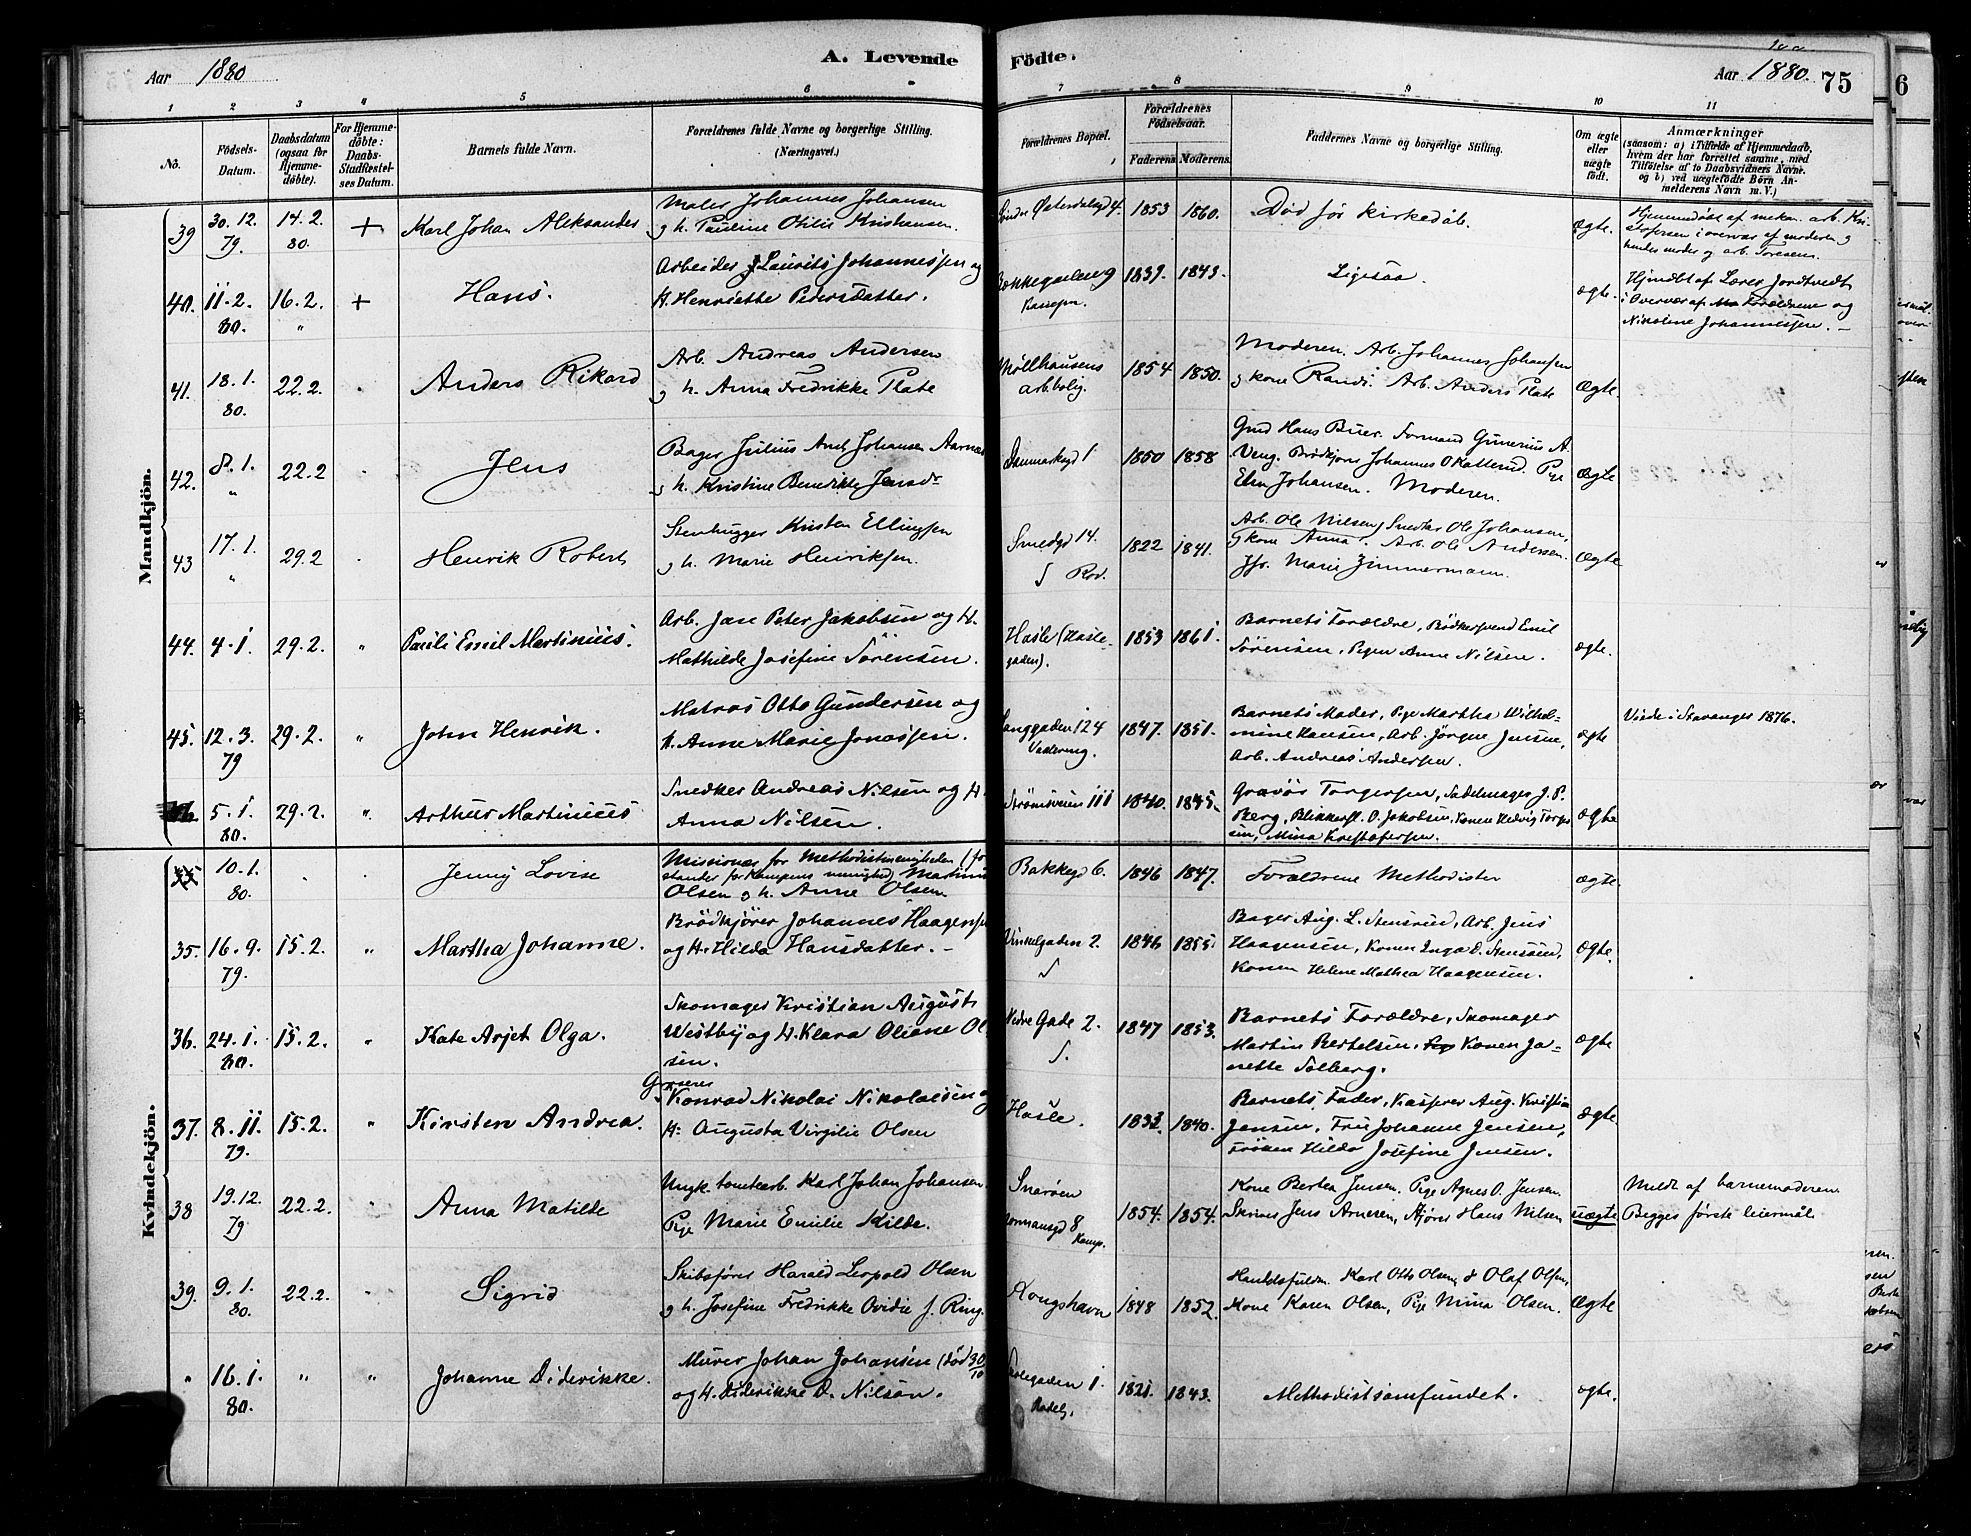 Aar 1880
A. Levende Födte.
Aar 1880. 75
1 2 3 4 5 6 7 8 9 10 11
No.
Födsels-Datum.
Daabsdatum (ogsaa for Hjemme-döbte).
For Hjemme-döbte: Daabs-Stadfæstel-ses Datum.
Barnets fulde Navn.
Forældrenes fulde Navne og borgerlige Stilling. (Næringsvei.)
Forældrenes Bopæl.
Forældrenes Födselsaar.
Faderens. Moderens.
Faddernes Navne og borgerlige Stilling.
Om ægte eller uægte födt.
Anmærkninger (saasom: a) i Tilfælde af Hjemmedaab, hvem der har forrettet samme, med Tilföielse af to Daabsvidners Navne. og b) ved uægtefödte Börn An-melderens Navn m. V.)
Mandkjön.
39 30.12. 79 14.2. 80. + Karl Johan Aleksander Maler Johannes Johansen
og h. Pauline Otilie Kristiansen. Søndre Østerdalsgd 4. 1853 1860. Død før kirkedåb. Ægte. Hjemmedøbt af mekan. arb. Kri-
stofersen i overvær af moderen og
hendes moder og arb. Toresen.
40. 11.2. 80. 16.2. + Hans. Arbeider J Laurits Johannessen og
H. Henriette Pedersdatter. Bækkegaden 9 1839. 1843. Ligesaa. ægte. Hjmdbt af Lærer Jordtvedt
i Overvær af Forældrene og
Nikoline Johannessen. —
41. 18.1. 80. 22.2. Anders Rikard Arb. Andreas Andersen
og h. Anna Fredrikke Plate Møllhausens
arb.bolig. 1854 1850. Moderen. Arb. Johannes Johansen
og kone Randi. Arb. Anders Plate Ægte.
42. 8.1. " 22.2 Jens Bager Julius Anel Johansen Aarnæs
og h. Kristine Benedikte Jensdr Danmarksgd 1 1850 1858 Gmd Hans Buer. Formand Gunerius A.
Veng. Brødkjører Johannes O Katterud. Pige
Elen Johansen. Moderen. Ægte
43 17.1. " 29.2 Henrik Robert Stenhugger Kristen Ellingsen
og h. Marie Henriksen. Smedgd 14. 1822 1841. Arb. Ole Nilsen, Snedker Ole Johansen,
og kone Anna. Arb. Ole Andersen.
Jfr. Marie Zimmermann. Ægte
44. 4.1. 29.2. " Pauli Emil Martinius. Arb. Jens Peter Jakobsen og H.
Mathilde Josefine Sörensen. Hasle (Hasle-
gaden). 1853 1861. Barnets Forældre, Bödkersvend Emil
Sörensen, Pigen Anne Nilsen. ægte.
45. 12.3. 79 29.2. " John Henrik. Matros Otto Gundersen og
h. Anne Marie Jonassen. Langgaden 124 1847. 1851. Barnets Moder, Pige Martha Wilhel-
mine Hansen, Arb. Jörgine Jensen,
Arb. Andreas Andersen. ægte Viede i Stavanger 1876.
5.1. 80. 29.2. " Arthur Martinius Snedker Andreas Nilsen og H.
Anna Nilsen. Strömsveien 111 1840. 1845. Gravör Torgersen, Sadelmager J. P.
Berg, Blikkensl. O. Jakobsen, Konen Hedvig Torger
sen, Mina Kristofersen. ægte
Kvindekjön.
10.1. 80. Jenny Lovise Missionær for Methodistmenigheden (for
stander for Kampens menighed) Martinus
Olsen og h. Anne Olsen Bakkegd 6. 1846 1847. Forældrene Methodister ægte.
35. 16.9. 79. 15.2. " Martha Johanne. Brödkjörer Johannes Haagensen
og H. Hilda Hansdatter. — Vinkelgaden 2. 1846 1855. Bager Aug. L. Stensrud, Arb. Jens
Haagensen, Konen Inga D. Stensrud,
Konen Helene Mathea Haagensen. ægte.
36. 24.1. 80. 15.2. " Kate Arjet Olga. Skomager Kristian August
Westby og H. Klara Oliane Ol
sen. Nedre Gade 2. 1847 1853. Barnets Forældre, Skomager
Martin Bertelsen, Konen Ja-
nette Solberg. ægte
37. 8.11. 79. 15.2. " Kirsten Andrea. Grosserer
Konrad Nikolai Nikolaisen og
H. Augusta Virgilie Olsen Hasle. 1833. 1840. Barnets Fader, Kasserer Aug. Kristian
Jensen, Fru Johanne Jensen,
Fröken Hilda Josefine Jensen. ægte.
38 19.12. 79 22.2. " Anna Matilde Ungk. tomtearb. Karl Johan Johansen
Pige Marie Emilie Kilde. Snarøen
Normansgd 8 Kamp. 1854. 1854. Kone Bertea Jensen. Pige Agnes O. Jensen.
Skriver Jens Arnesen, Kjører Hans Nilsen uægte Meldt af barnemoderen
Begges første leiermål
39. 9.1. 80. 22.2. Sigrid Skibsfører Harald Leopold Olsen
og h. Josefine Fredrikke Ovidie f. Ring. Kongshavn 1848 1852. Handelsfuldm. Karl Otto Olsen, d Olaf Olsen,
Kone Karen Olsen, Pige Mina Olsen. Ægte
" 16.1. 80. " " Johanne Diderikke. Murer Johan Johansen (död 30/10
og H. Diderikke D. Nilsen. 1821. 1843. Methodistsamfundet. ægte.